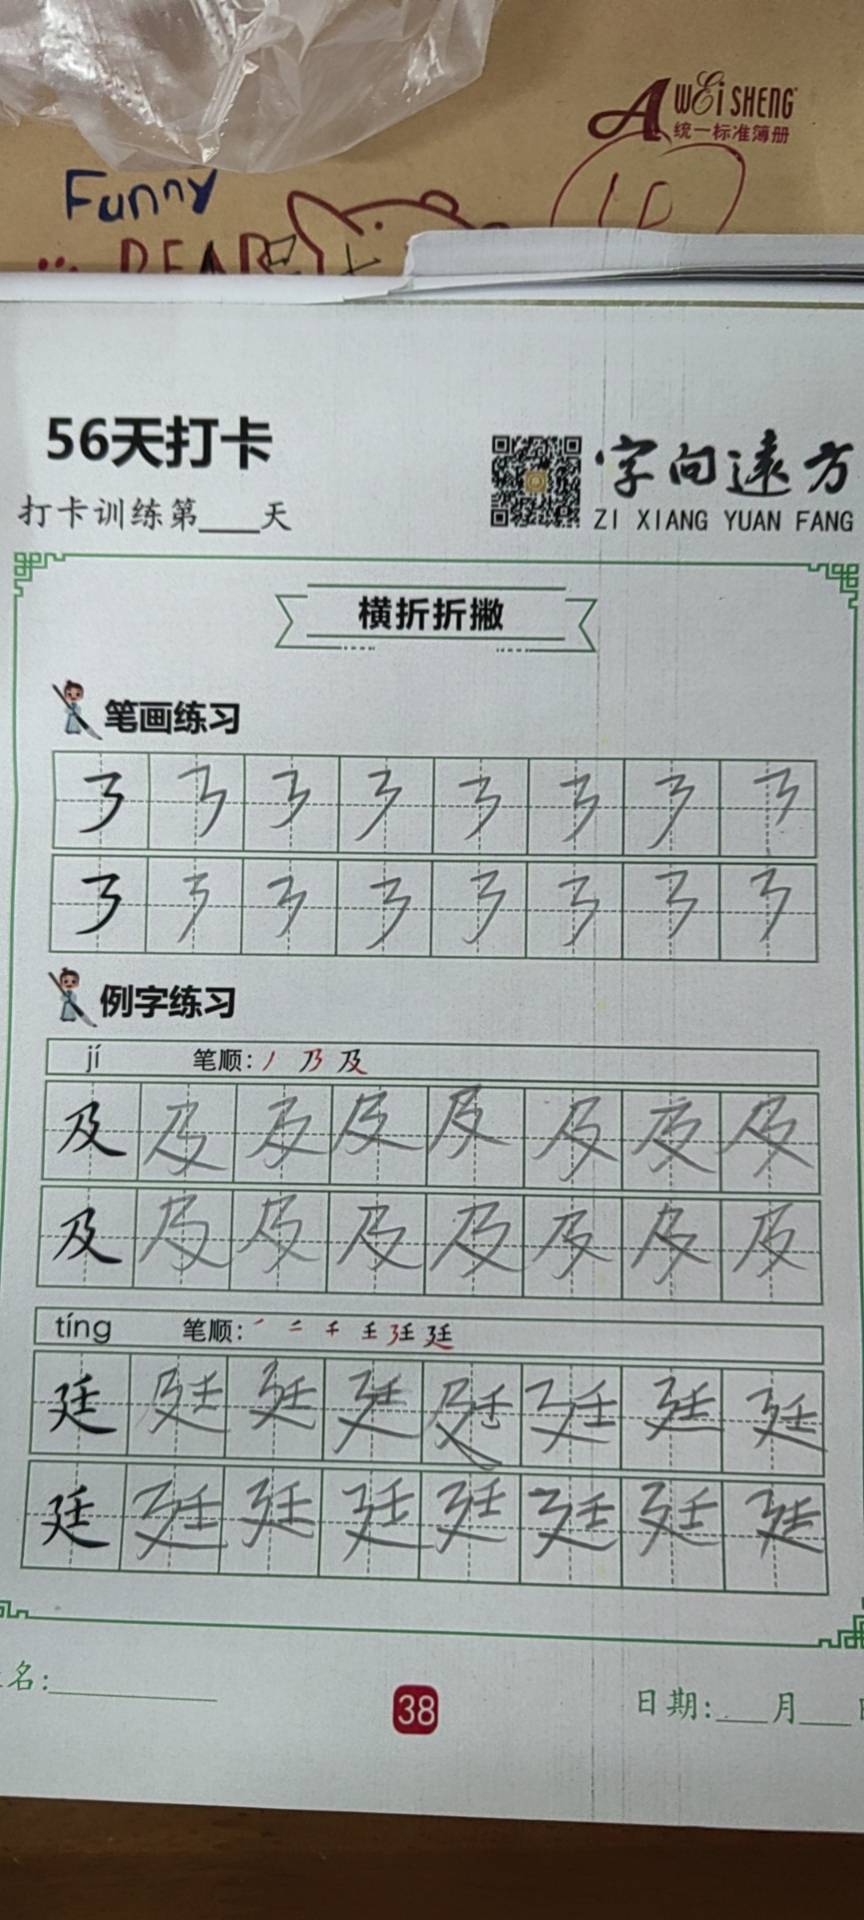 AWEiSHENG
统一标准簿册
Funny
BEAR
56天打卡
字向遠方
打卡训练第____天
ZI XIANG YUAN FANG
横折折撇
笔画练习
例字练习
jí 笔顺: 丿 乃 及
及 及 及 及 及 及 及 及
及 及 及 及 及 及 及 及
tíng 笔顺: 廷
廷 廷 廷 廷 廷 廷 廷 廷
廷 廷 廷 廷 廷 廷 廷 廷
名:________ 38 日期:___月___日